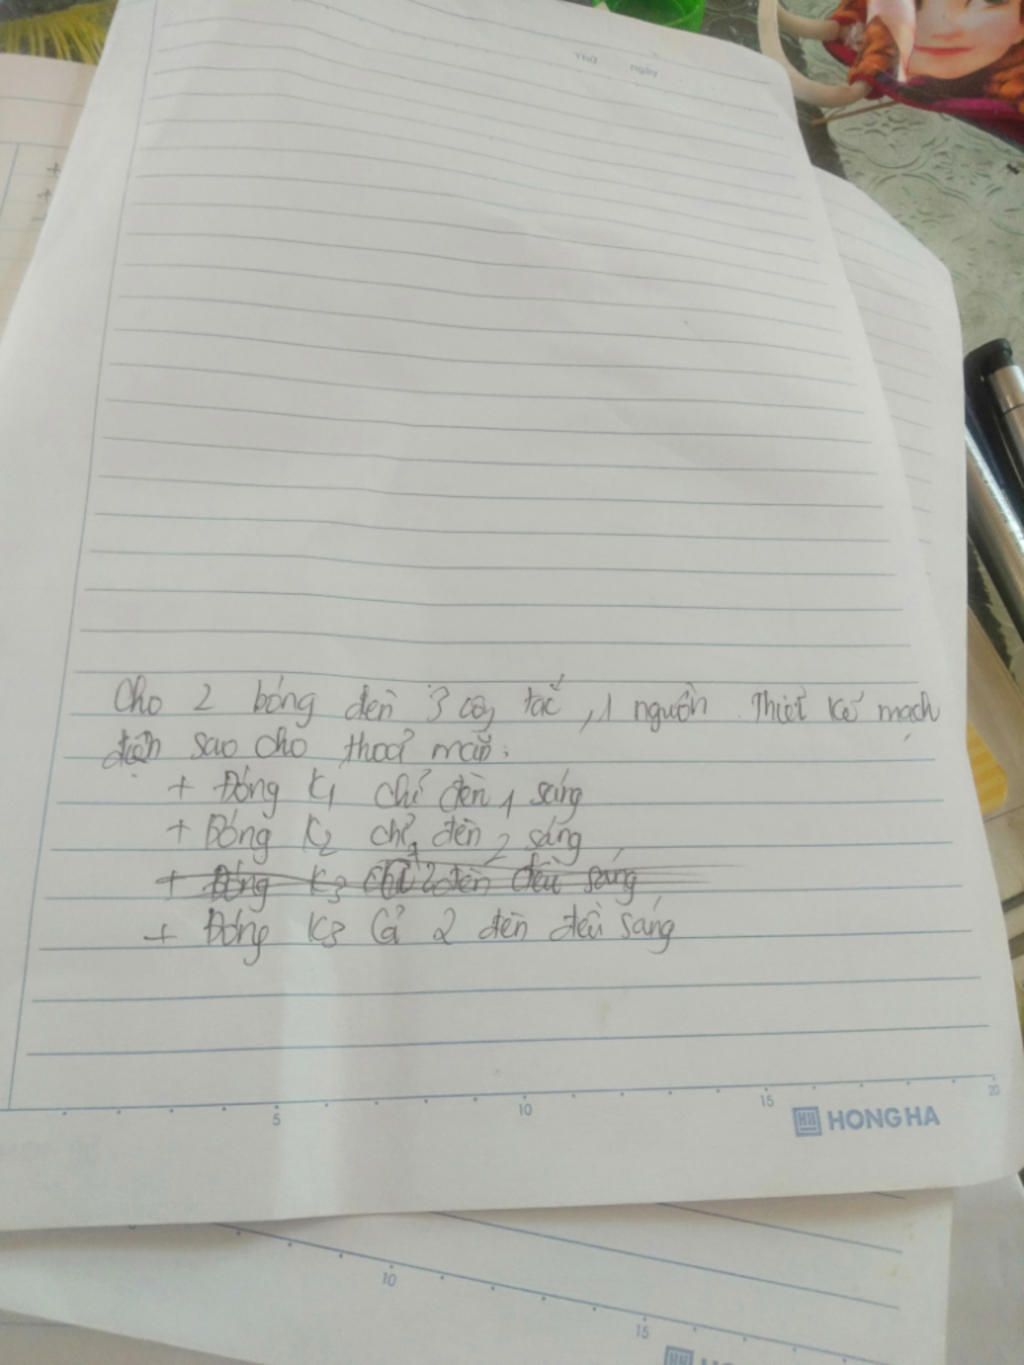 Thứ ngày
Cho 2 bóng đèn 3 công tắc, 1 nguồn. Thiết kế mạch
điện sao cho thoả mãn:
+ Đóng K1 chỉ đèn 1 sáng
+ Đóng K2 chỉ đèn 2 sáng
+ Đóng K3 cả 2 đèn đều sáng
+ Đóng K3 Cả 2 đèn đều sáng
5 10 15 20
HONG HA
10 15